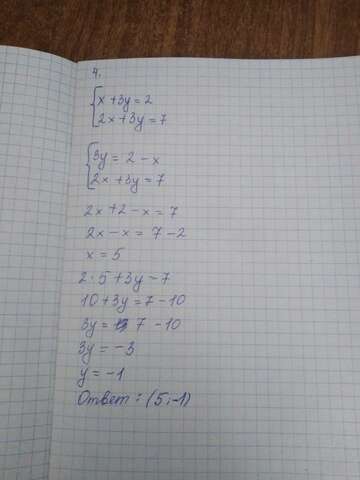 4.
{x+3y=2
{2x+3y=7
{3y=2-x
{2x+3y=7
2x+2-x=7
2x-x=7-2
x=5
2·5+3y-7
10+3y=7-10
3y= 7-10
3y=-3
y=-1
Ответ: (5;-1)